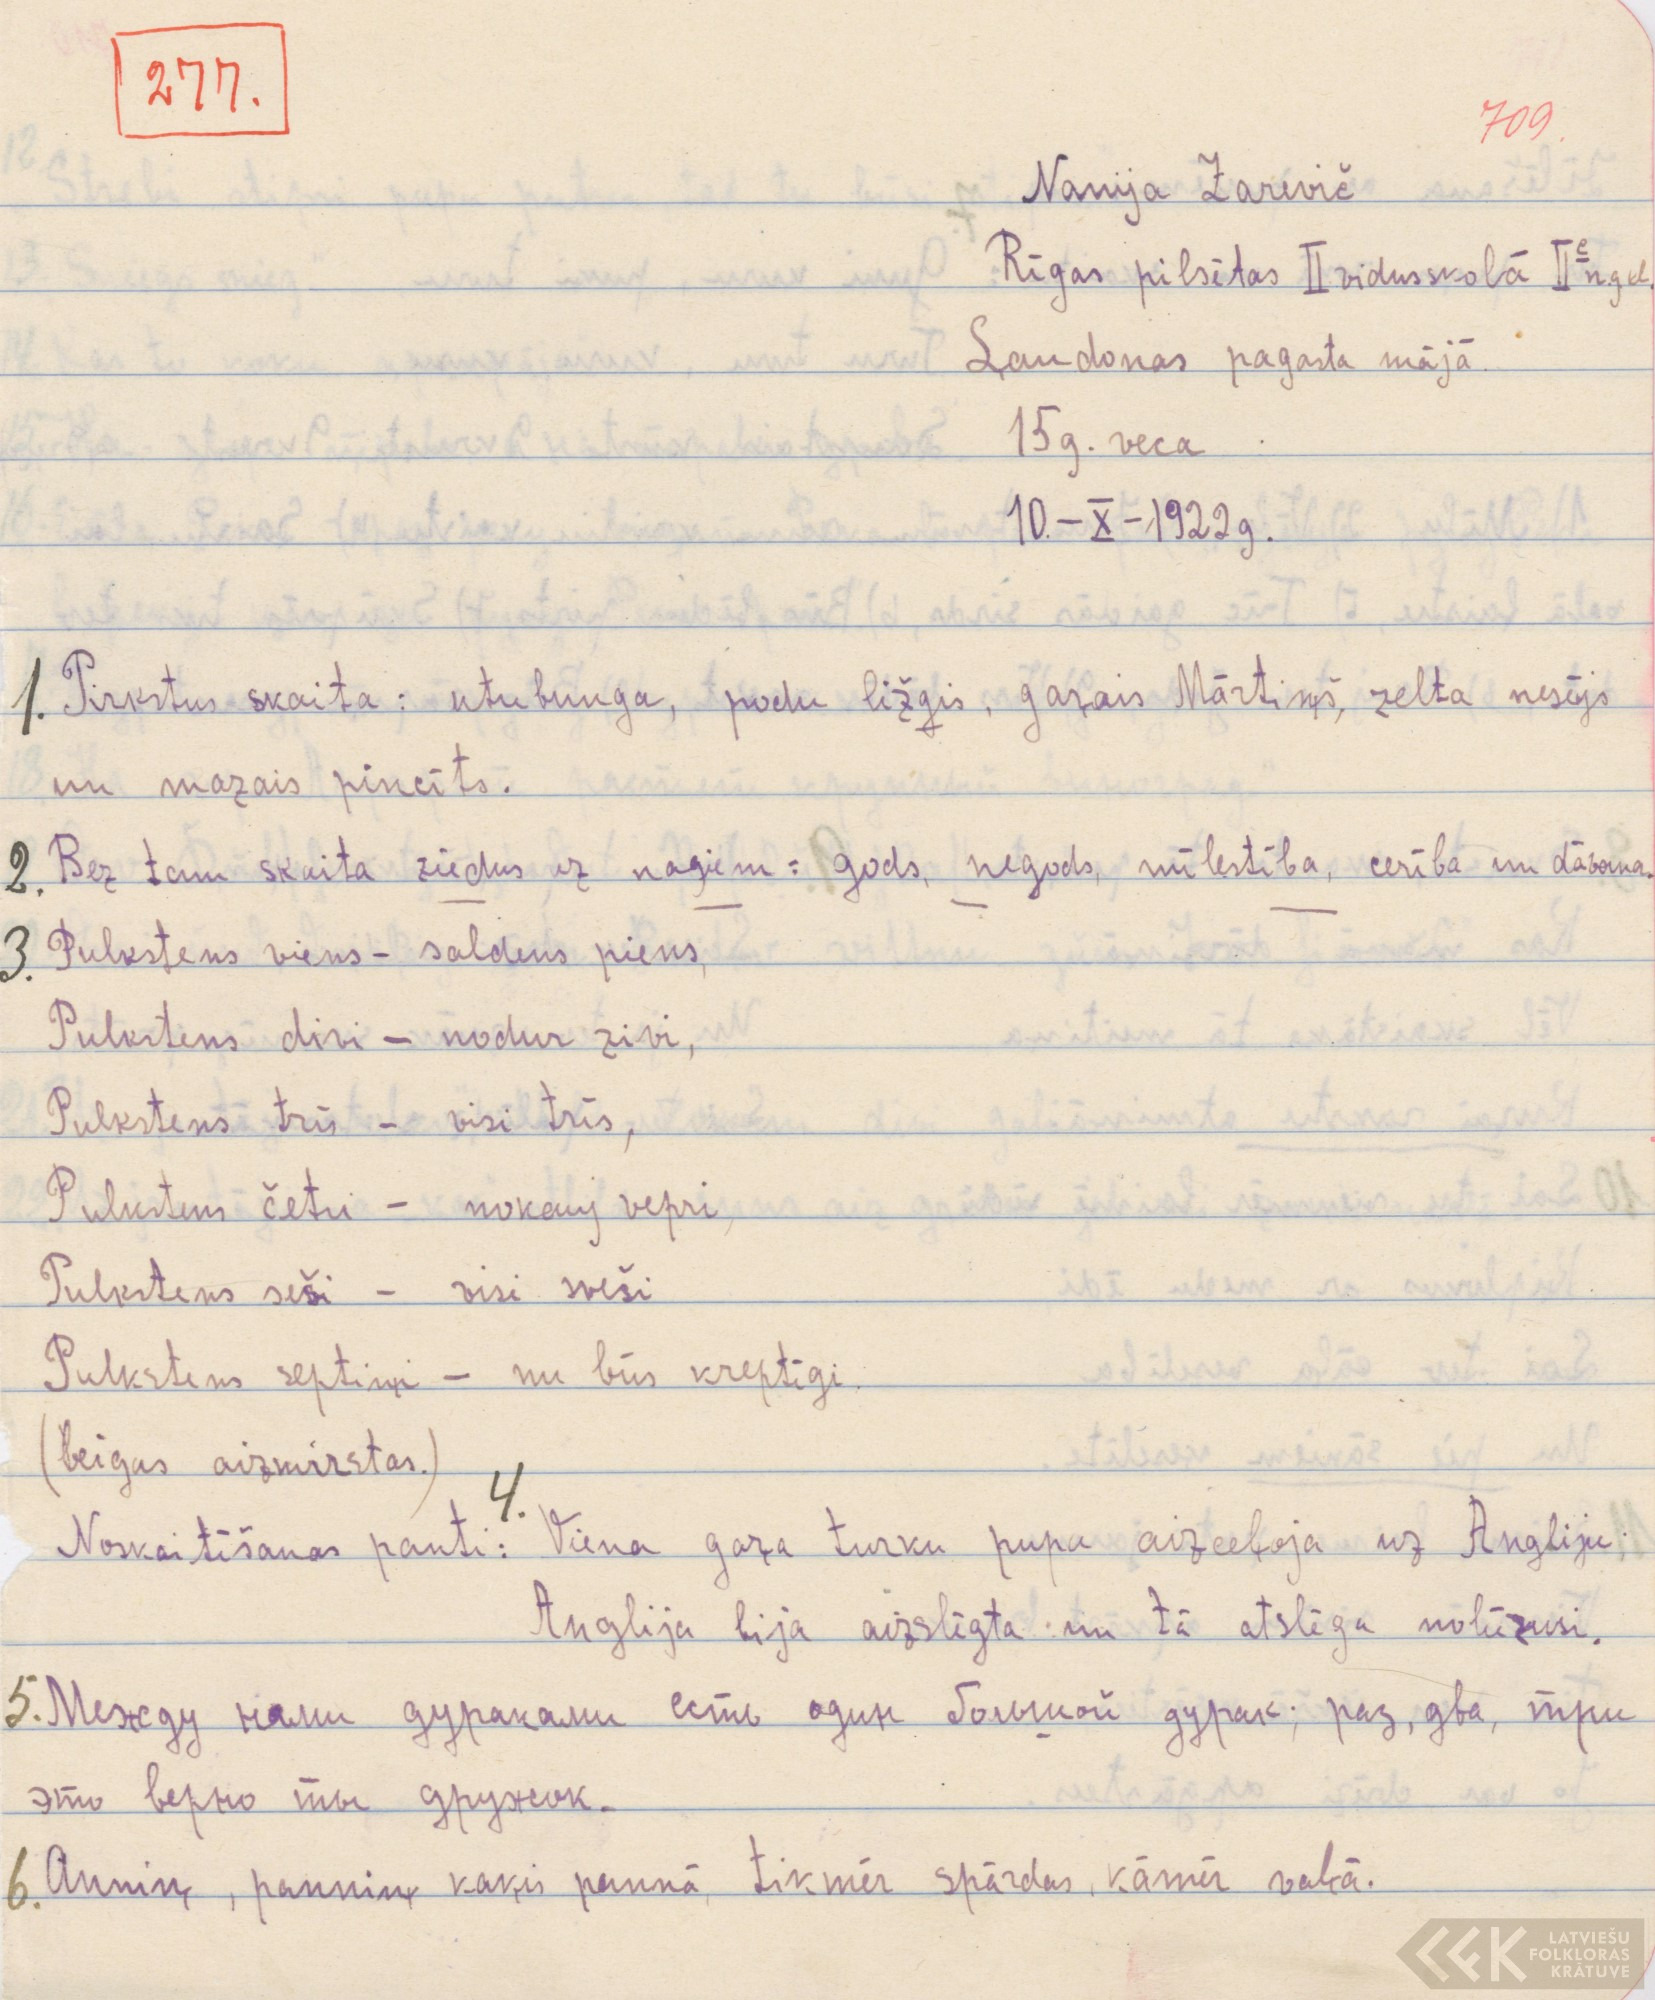 277.
709.
Nanija Zarevič
Rīgas pilsētas II vidusskolā II e n.g. kl.
Ļaudonas pagasta mājā.
15 g. veca
10.-X-1922 g.
1. Pirkstus skaita: utubunga, podu ližģis, gaŗais Mārtiņš, zelta nesējs
un mazais pincīts.
2. Bez tam skaita ziedus uz nagiem: gods, negods, mīlestība, cerība un dāvana.
3. Pulkstens viens - saldens piens,
Pulkstens divi - nodur zivi,
Pulkstens trīs - visi trīs,
Pulkstens četri - nokauj vepri,
Pulkstens seši - visi sveši
Pulkstens septiņi - nu būs kreptīgi.
(beigas aizmirstas.)
Noskaitīšanas panti: 4. Viena gaŗa turku pupa aizceļoja uz Angliju.
Anglija bija aizslēgta un tā atslēga nolūzusi.
5. Между нами дураками есть один большой дурак; раз, два, три
это верно ты дружок.
6. Anniņ, panniņ kaķis pannā, tikmēr spārdas, kāmēr vaļā.
LATVIEŠU
FOLKLORAS
KRĀTUVE